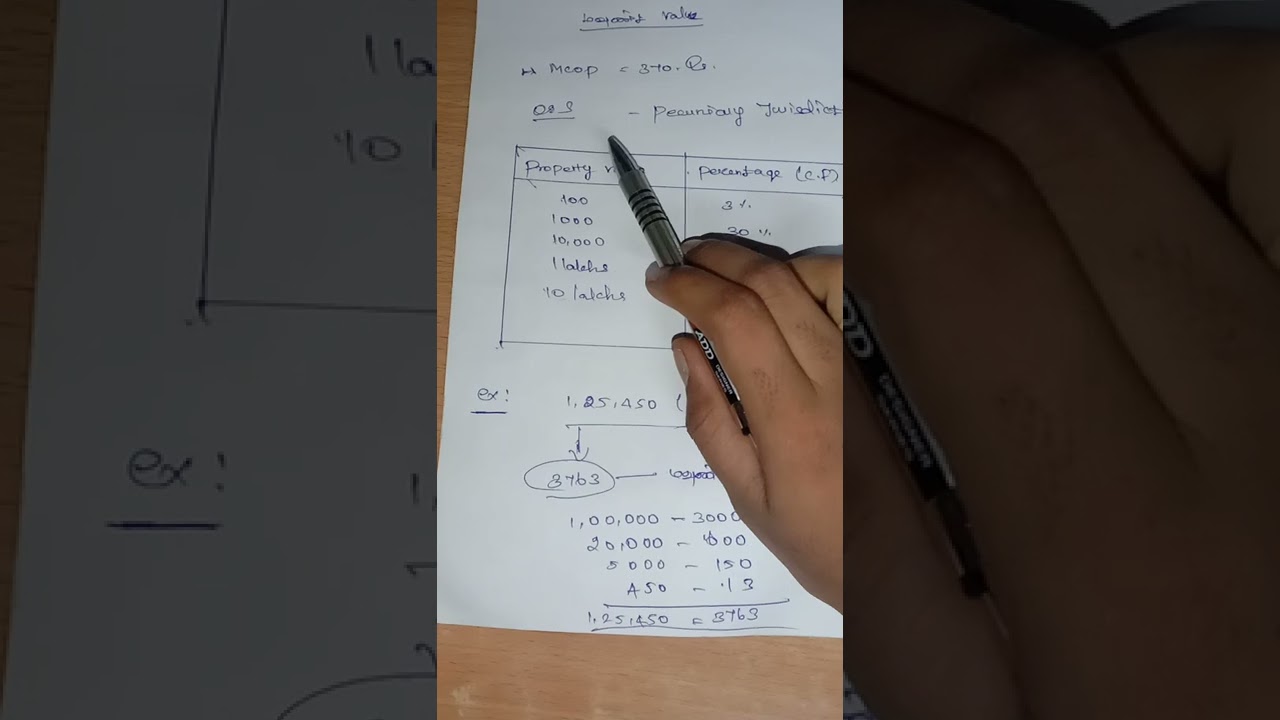 value
MCOP = 370. Rs.
O.S - Pecuniary Jurisdict
Property Percentage (C.F)
100 3 %
1000 30 %
10,000
1 lakhs
10 lakhs
ex: 1,25,450 (
3763
1,00,000 - 3000
20,000 - 600
5000 - 150
450 - 13
1,25,450 = 3763